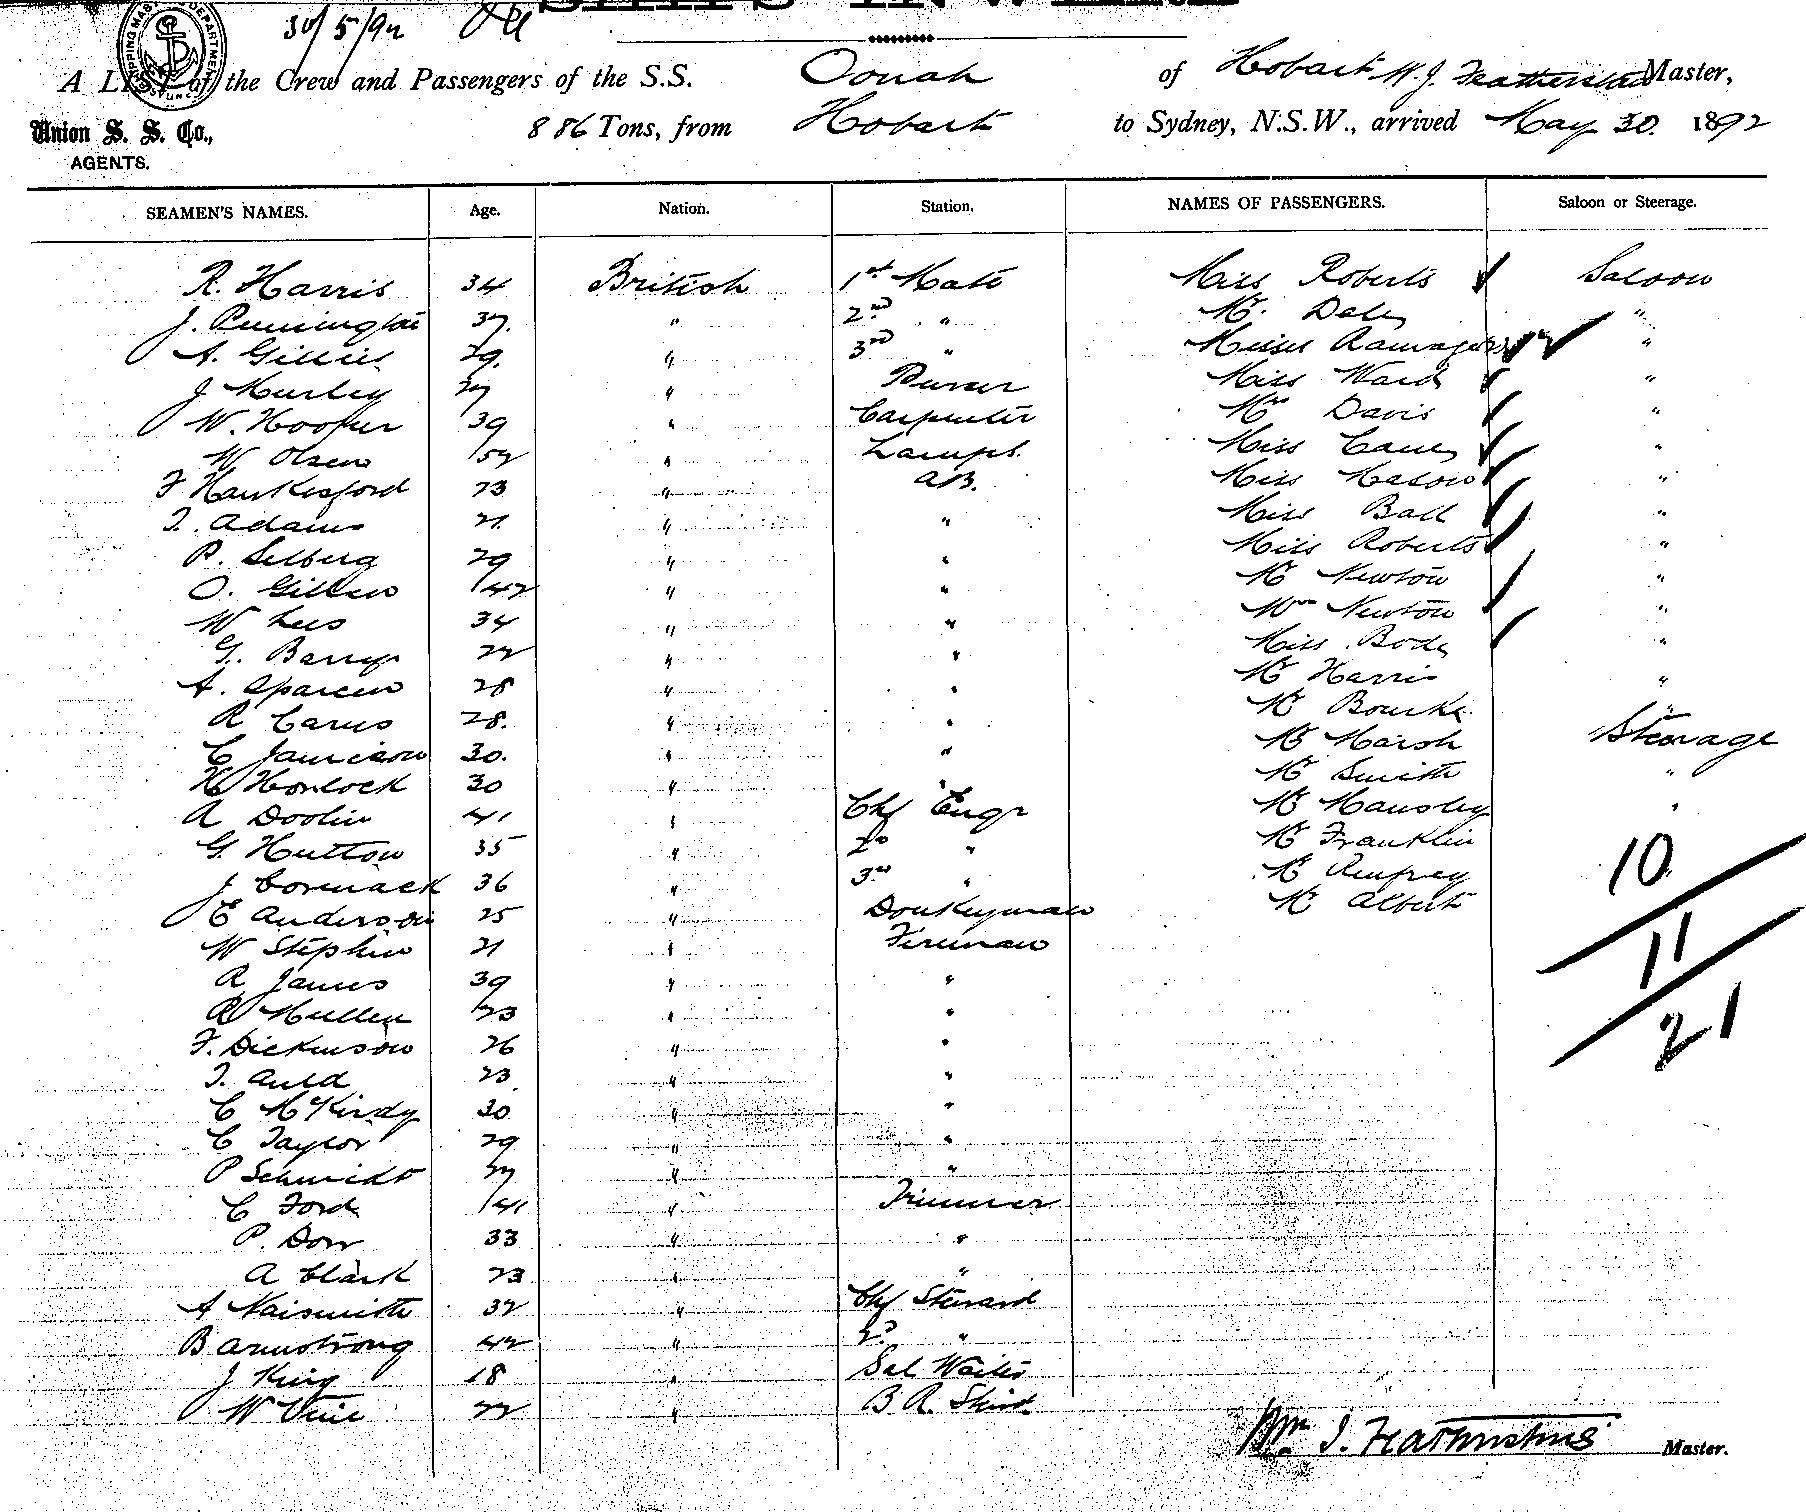 SHIPS INWARD
30/5/92
A LIST of the Crew and Passengers of the S.S. Oonah of Hobart W. J. Featherstone Master,
Union S. S. Co., AGENTS.
886 Tons, from Hobart to Sydney, N.S.W., arrived May 30. 1892
SEAMEN'S NAMES. Age. Nation. Station. NAMES OF PASSENGERS. Saloon or Steerage.
R. Harris 34 British 1st Mate Miss Roberts Saloon
J. Pennington 37. " 2nd " Mr. Daly "
A. Gillies 29. " 3rd " Misses Ramage "
J. Hurley 27 " Purser Miss Ward "
W. Hooper 39 " Carpenter Mrs Davis "
W Olsen 52 " Lamps. Miss "
F HanKesford 23 " A.B. Miss Mason "
T. Adams 21. " " Miss Ball "
P. Selberg 29 " " Miss Roberts "
O. Gillen 42 " " Mr Newton "
W Lees 34 " " Mrs Newton "
G. Barry 22 " " Miss Body "
A. 28 " " Mr Harris "
R Carus 28. " " Mr Bourke "
C Jamieson 30. " " Mr Marsh Steerage
H Horlock 30 " " Mr Smith "
A Doolin 41 " Chf Engr Mr "
G. Hutton 35 " 2nd " Mr Franklin
J Cormack 36 " 3rd " Mr
E Anderson 25 " Donkeyman Mr Albert
W Stephen 21 " Fireman
R James 39 " "
R Mullen 23 " "
F. Dickinson 26 " "
T. Auld 23 " "
C McKirdy 30 " "
C Taylor 29 " "
P Schmidt 27 " "
C Ford 41 " Trimmer
P. Dow 33 " "
A Clark 23 " "
A Naismith 32 " Chf Steward
B Armstrong 42 " 2nd "
J King 18 " Sal Waiter
W Vine 22 " B. R. Stwd.
10
11
21
Wm J. Featherstone Master.